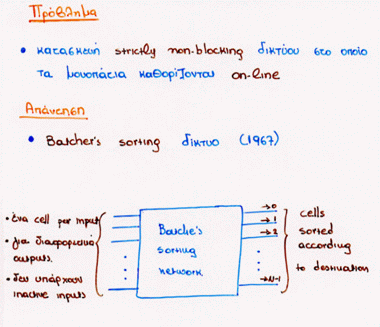 Πρόβλημα
• κατασκευή strictly non-blocking δικτύου στο οποίο
τα μονοπάτια καθορίζονται on-line
Απάντηση
• Batcher's sorting δίκτυο (1967)
• ένα cell per input
• για διαφορετικά
outputs.
• δεν υπάρχουν
inactive inputs
Batche's
sorting
network
→0
→1
→2
→N-1
cells
sorted
according
to destination